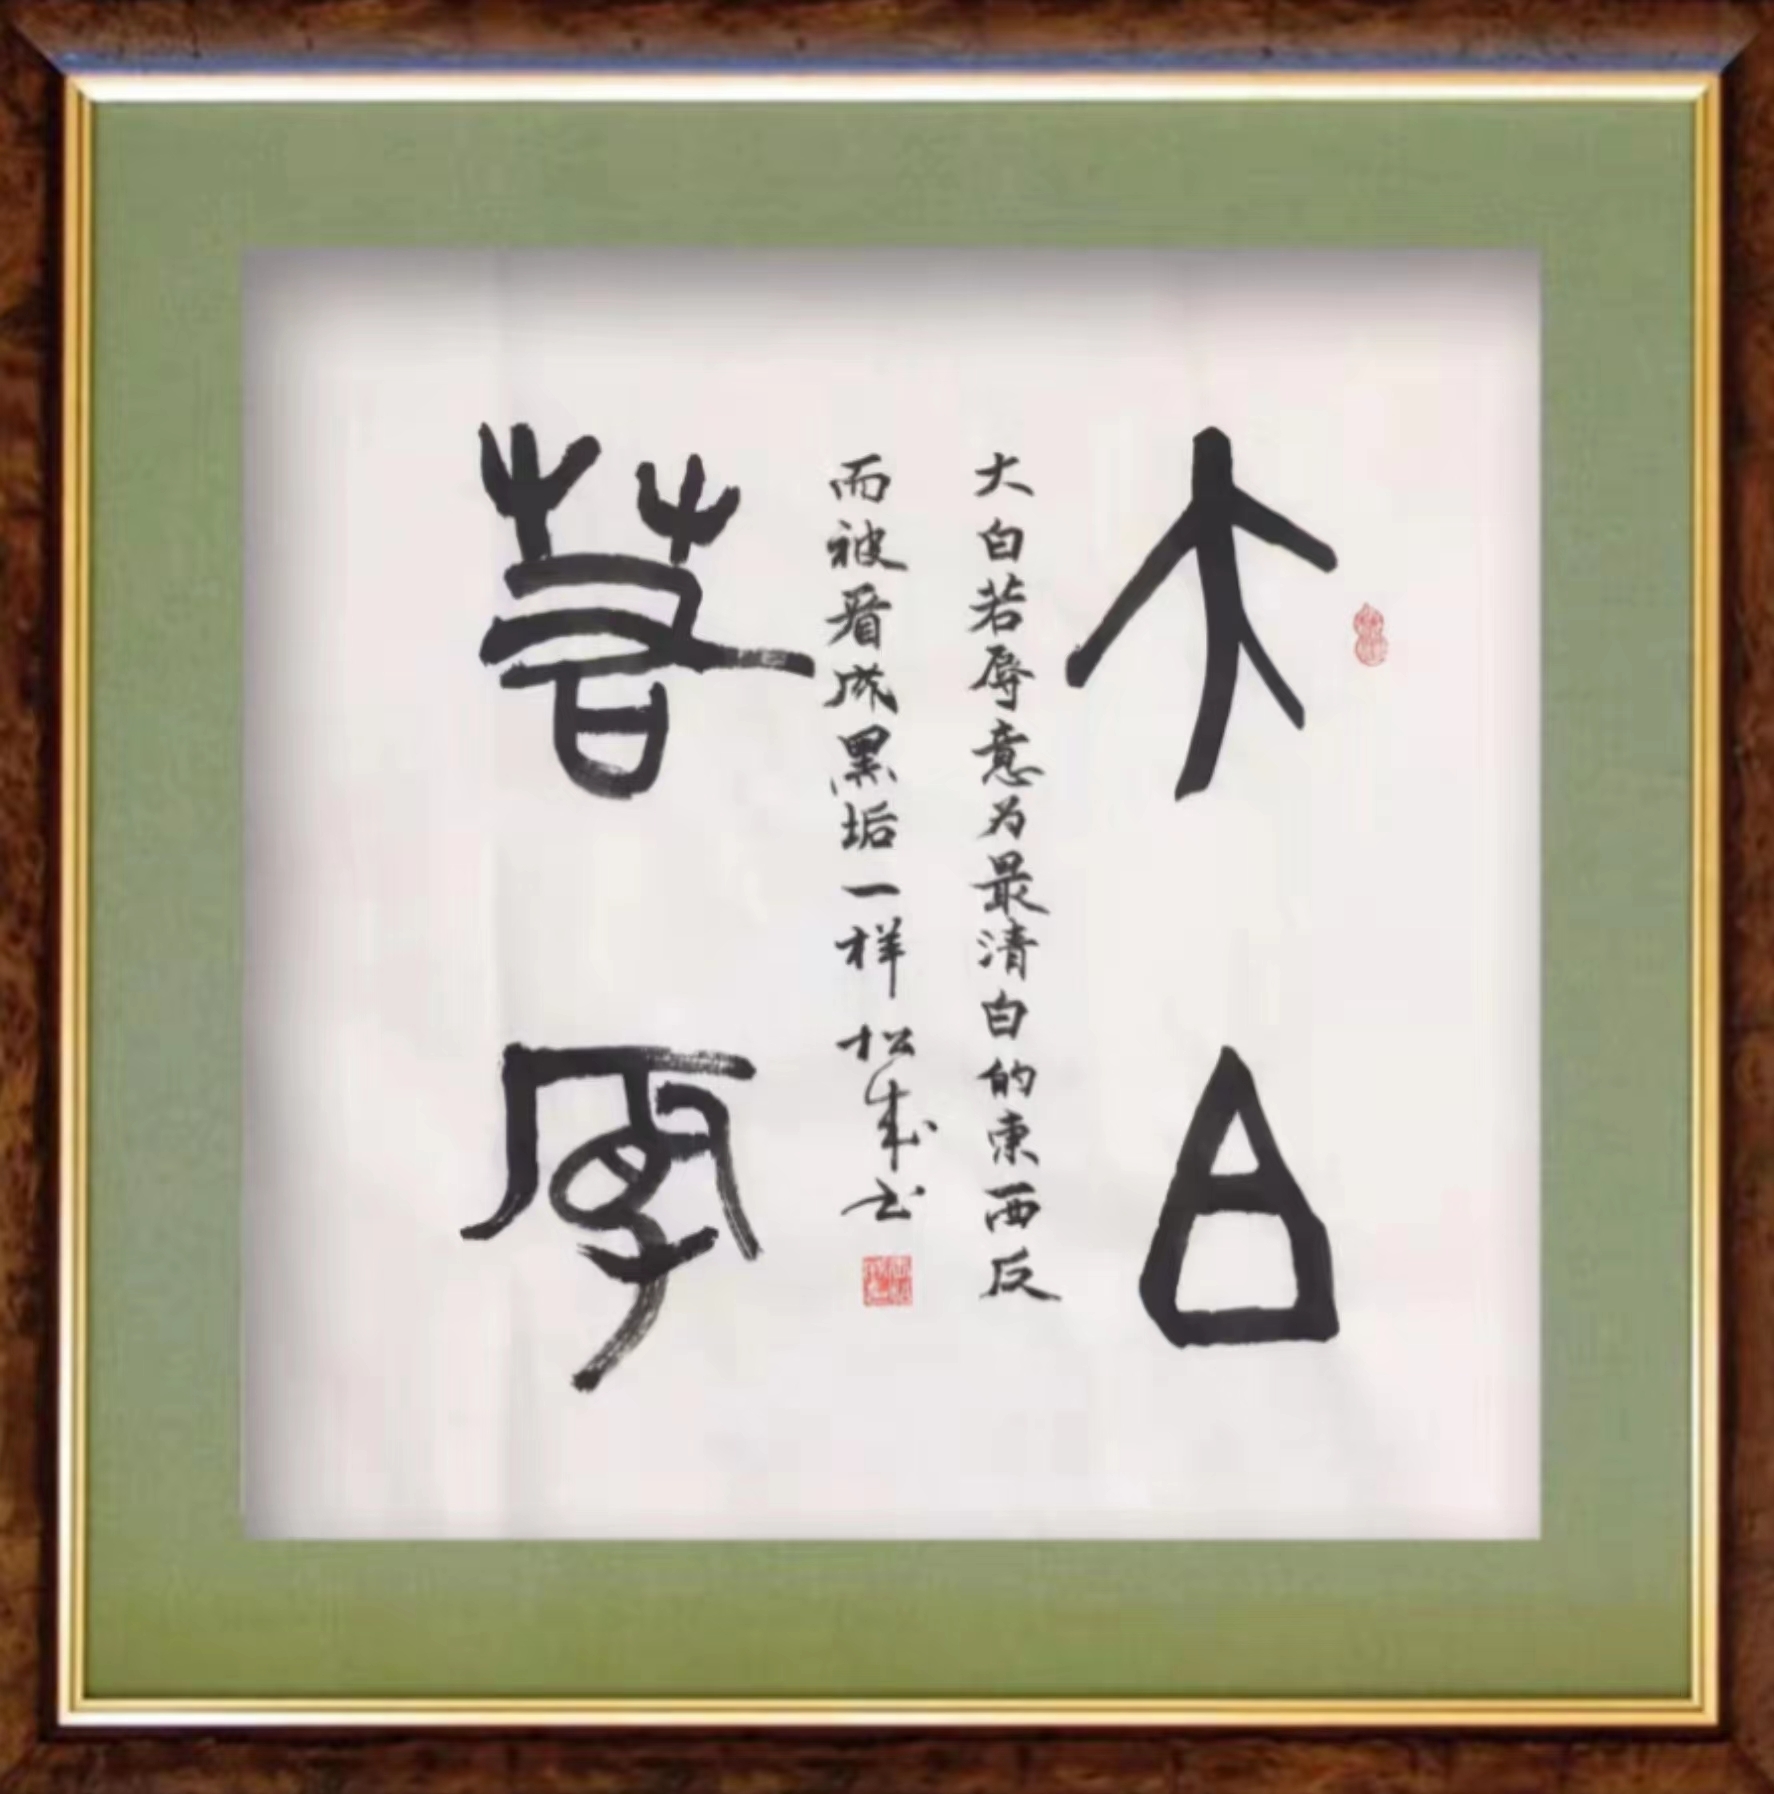 大白
大白若辱意为最清白的东西反
而被看成黑垢一样 松成书
若辱